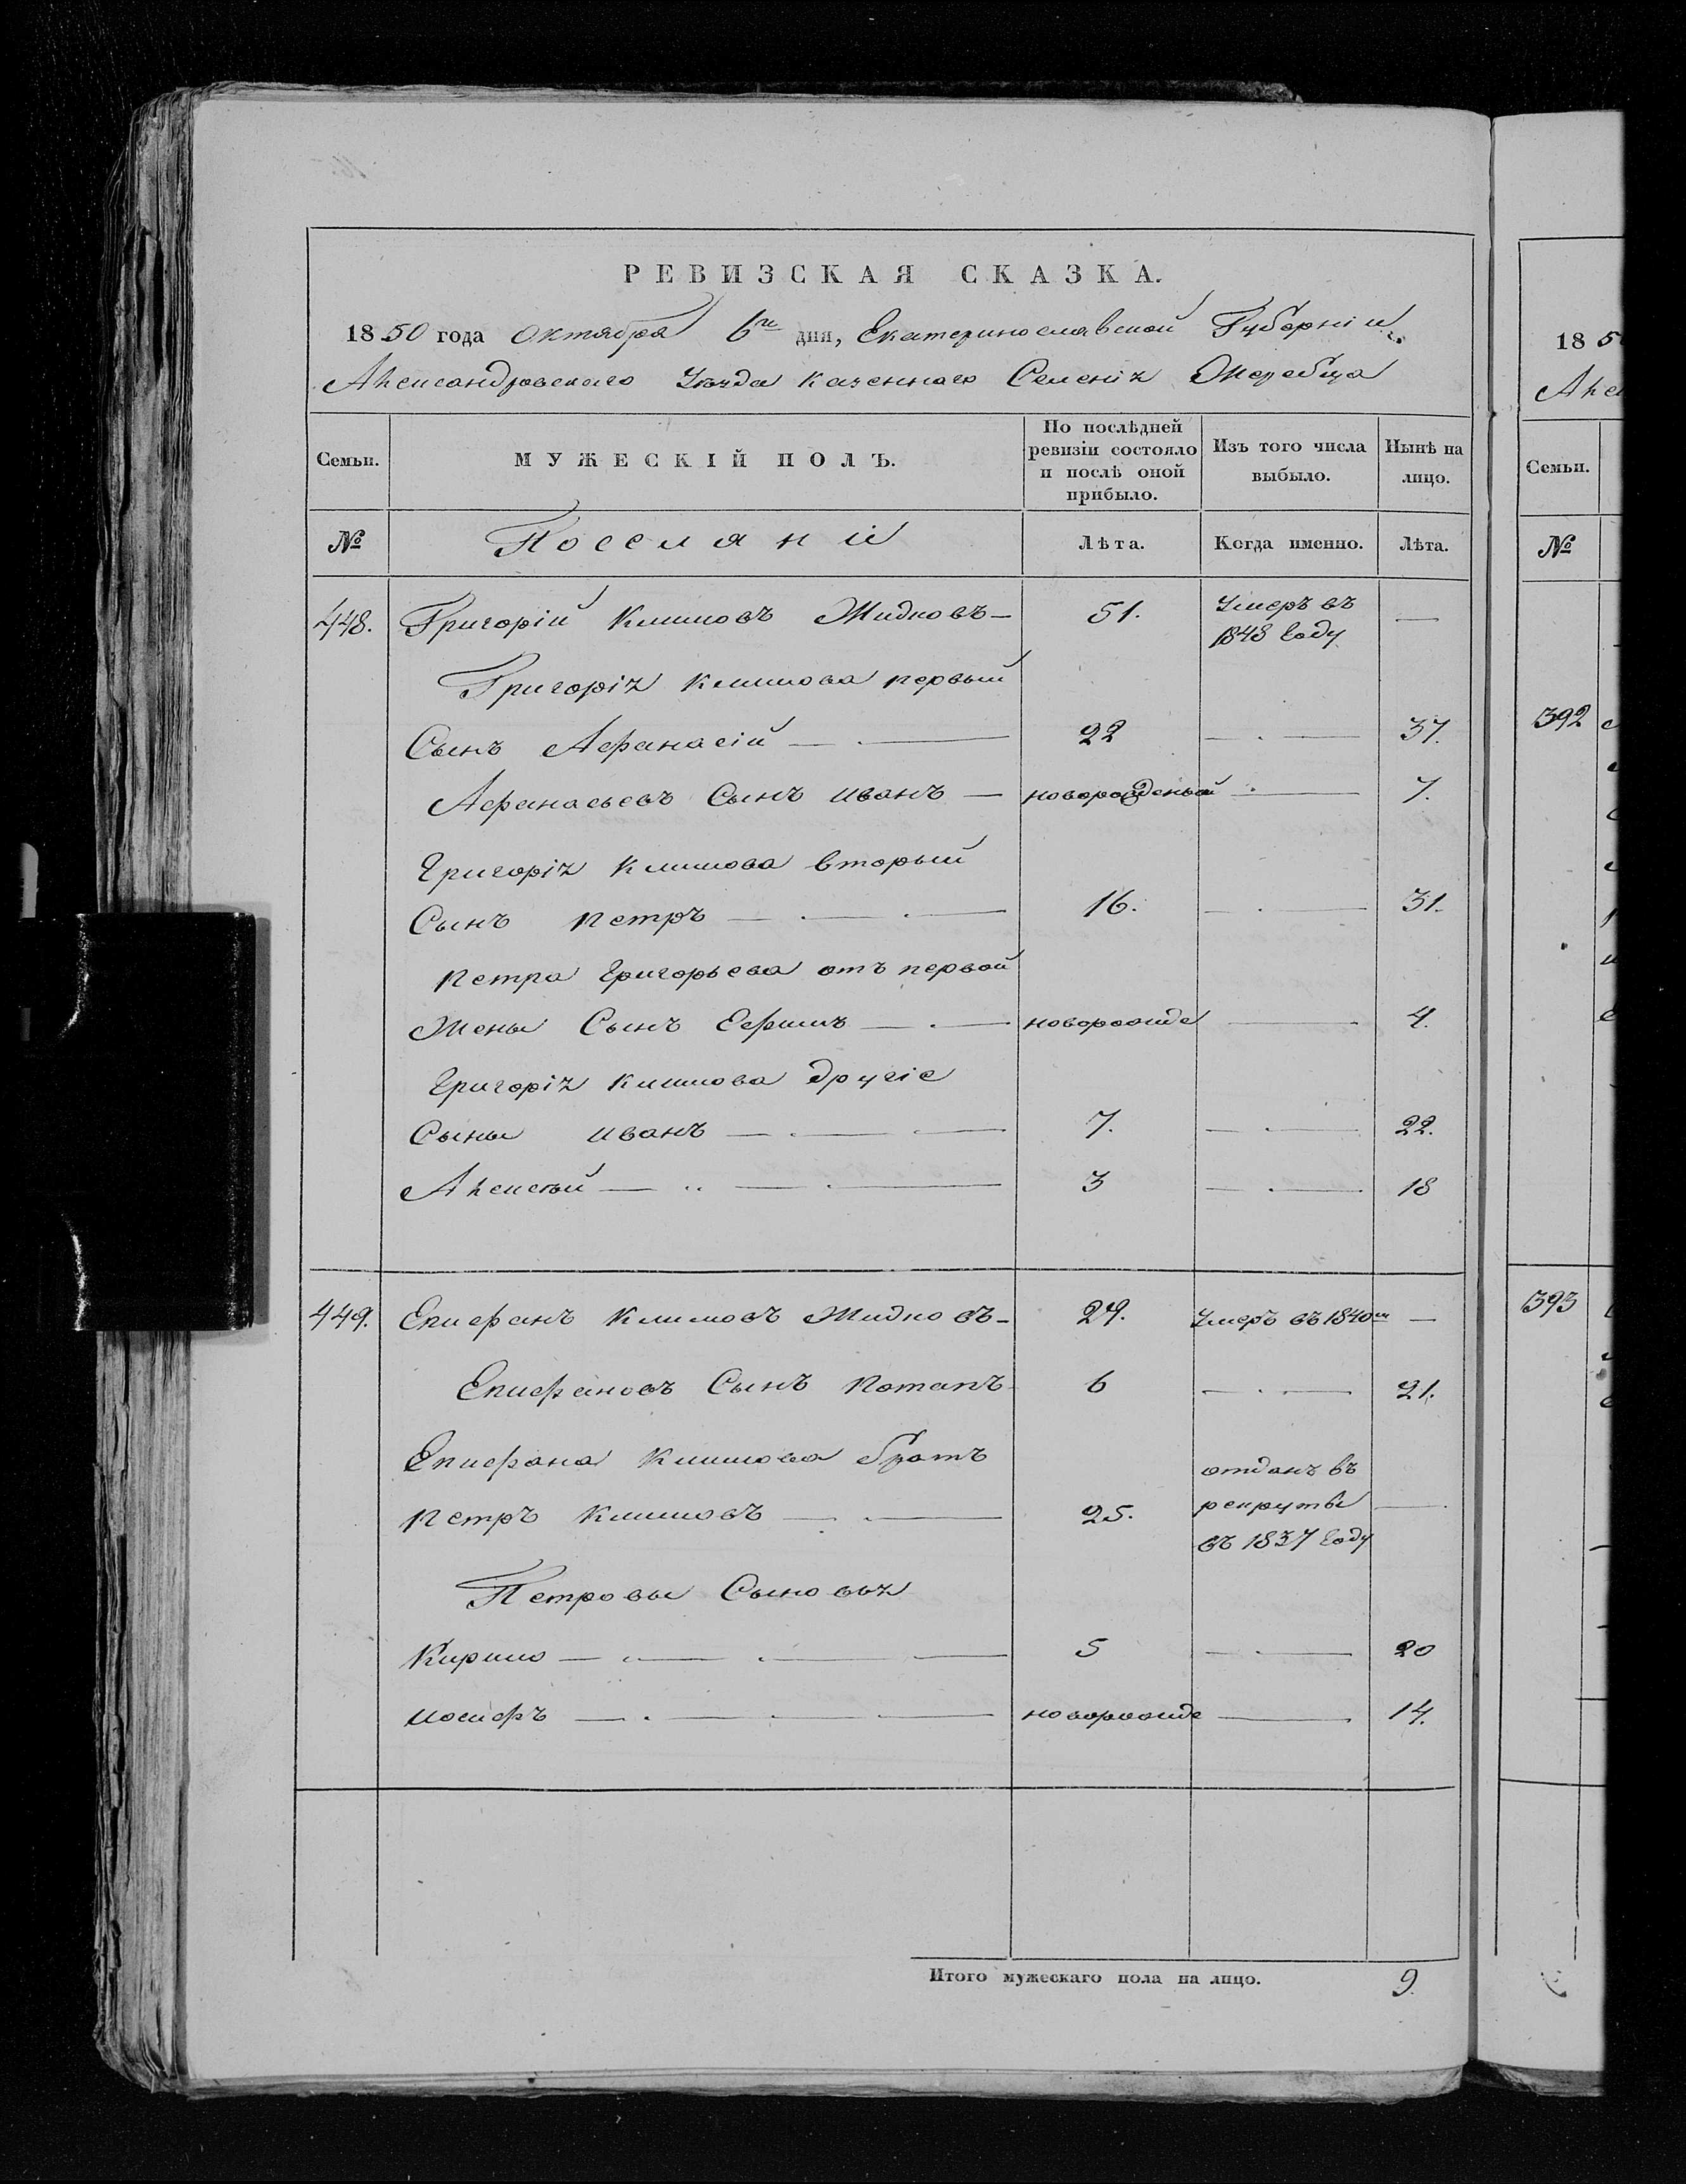 РЕВИЗСКАЯ СКАЗКА.
1850 года Октября 6го дня, Екатеринославской Губерніи
Александровскаго Уѣзда казеннаго Селенія Жеребца
Семьи. МУЖЕСКІЙ ПОЛЪ. По послѣдней ревизіи состояло и послѣ оной прибыло. Изъ того числа выбыло. Нынѣ на лицо.
№ Поселяни Лѣта. Когда именно. Лѣта.
448. Григорій Климовъ Жидковъ — 51. Умеръ въ 1848 году —
Григорія Климова первый
Сынъ Афанасій — 22 — 37.
Афанасьевъ Сынъ Иванъ — новорожденый — 7.
Григорія Климова вторый
Сынъ Петръ — 16. — 31.
Петра Григорьева отъ первой
Жены Сынъ Ефимъ — новорожде — 4.
Григорія Климова другіе
Сыны Иванъ — 7. — 22.
Алексѣй — 3 — 18
449. Епифанъ Климовъ Жидковъ — 29. Умеръ въ 1840м —
Епифановъ Сынъ Потапъ 6 — 21.
Епифана Климова братъ
Петръ Климовъ — 25. отданъ въ рекруты въ 1837 году —
Петровы Сыновья
Кирило — 5 — 20
Иосифъ — новорожде — 14.
Итого мужескаго пола на лицо. 9.
18 5
Але
Семьи.
№
392
393